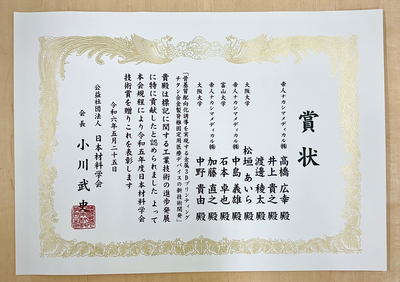 賞状
帝人ナカシマメディカル㈱ 高橋 広幸 殿
井上 貴之 殿
渡邊 稜太 殿
大阪大学 松垣 あいら 殿
帝人ナカシマメディカル㈱ 中島 義雄 殿
富山大学 石本 卓也 殿
帝人ナカシマメディカル㈱ 加藤 直之 殿
大阪大学 中野 貴由 殿
「骨基質配向化誘導を実現する金属3Dプリンティング
チタン合金製脊椎固定用医療デバイスの新技術開発」
貴殿は標記に関する工業技術の進歩発展
に特に貢献したと認められました よって
本会規程により令和五年度日本材料学会
技術賞を贈りこれを表彰します
令和六年五月二十五日
公益社団法人 日本材料学会
会長 小川 武史